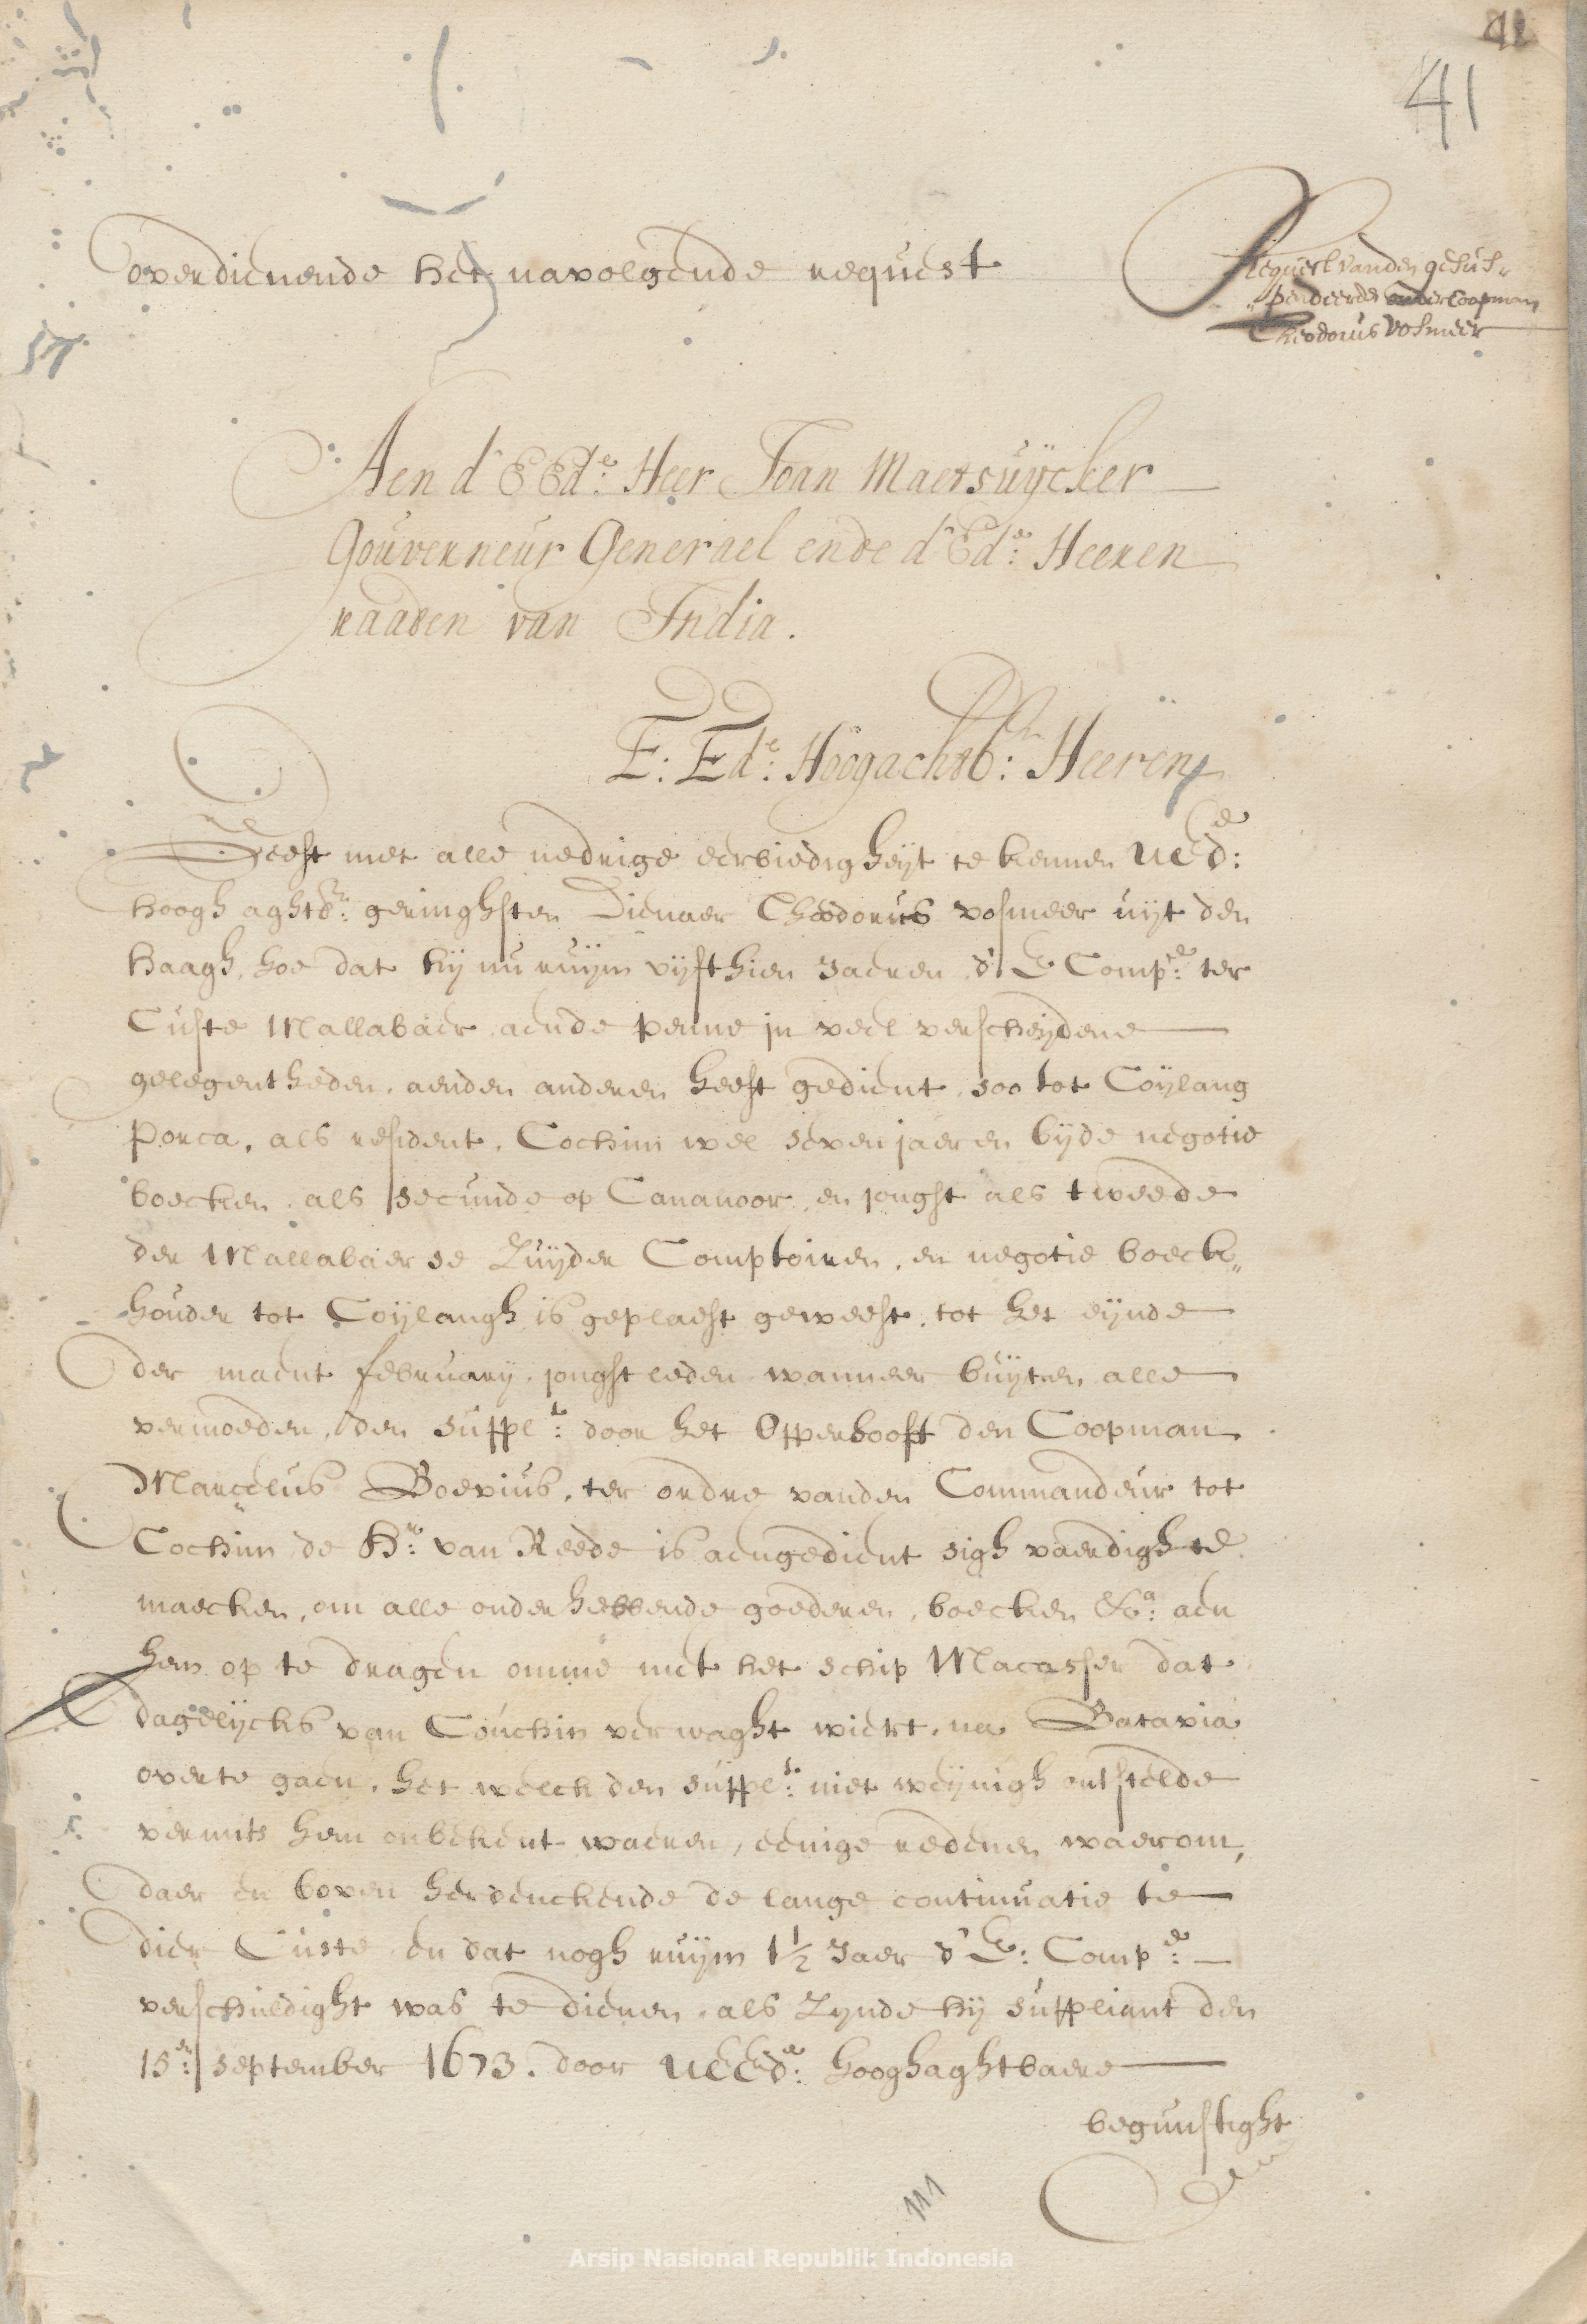 41
41
overdienende het navolgende request
Request vanden gesus-
pendeerde ondercoopman
Theodorus Vosmeer
Aen d' E Ed:e Heer Joan Maetsuÿcker
Gouverneur Generael ende d' Ed:e Heeren
raaden van India.
E: Ed:e Hoogachtb:r Heeren
Geeft met alle nedrige eerbiedigheÿt te kennen UEd:e
hoogh aghtb:r geringhsten Dienaer Theodorus vosmeer uÿt den
haagh, hoe dat hÿ nu ruÿm vÿfthien Jaeren d' E Comp:e ter
Custe Mallabaer aende penne in veel verscheÿdene
gelegentheden, aenden anderen heeft gedient, soo tot Coÿlang
Porca, als resident, Cochim wel seven jaeren bÿde negotie
boecken, als secunde op Cananoor, en jonghst als tweede
der Mallabaerse Zuÿder Comptoiren, en negotie boeck„
houder tot Coÿlangh is geplaest geweest, tot het eÿnde
der maent februarÿ jonghstleden wanneer buÿten alle
vermoeden, den suppl:t door het Opperhooft den Coopman
Marcelus Boexius, ter ordre vanden Commandeur tot
Cochim de H:r van Reede is aengedient sigh vaerdigh te
maecken, om alle onderhebbende goederen, boecken &:a aen
hem op te dragen omme met het schip Macasser dat
dagelÿcks van Couchin verwaght wiert, na Batavia
over te gaen, het welck den suppl:t niet weÿnigh ontstelde
vermits hem onbekent waeren, eenige redenen waerom,
daer en boven herdenckende de lange continuatie te
dier Custe en dat nogh ruÿm 1½ Jaer d' E: Comp:e
verschuldight was te dienen, als Zynde hÿ suppliant den
15:en september 1673. door UEEd:e hooghaghtbaere
begunstight
Arsip Nasional Republik Indonesia